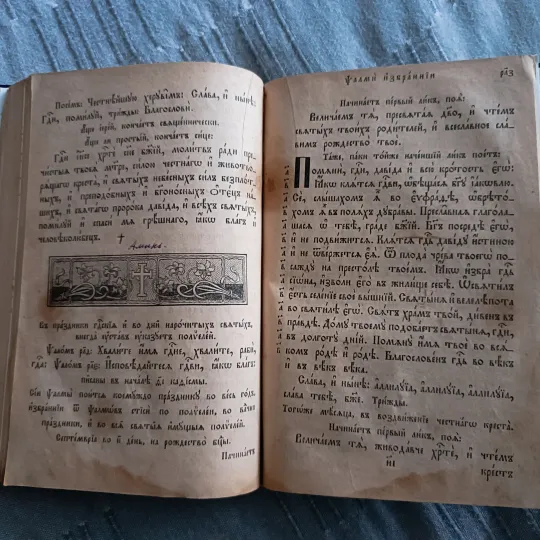 Посе́мъ: Честнѣ́йшую херꙋві̑мъ: Сла́ва, и҆ ны́нѣ:
Гд҇и, поми́лꙋй, три́жды: Благослови̂.
А҆́ще і҆ере́й, конча́етъ свяще́нннически.
А҆́ще ли просты́й, конча́етъ си́це:
Гд҇и і҆и҃се хр҇те̂ сн҃е бж҃їй, моли́твъ ра́ди пре-
чⷭ҇тыѧ твоеѧ̀ мт҃ре, си́лою честна́гѡ и҆ животво-
рѧ́щагѡ крⷭ҇та̀, и҆ свѧты́хъ небе́сныхъ си́лъ безпло́т-
ныхъ, и҆ преподо́бныхъ и҆ бг҃оно́сныхъ ѻ҆тє́цъ на́-
шихъ, и҆ свѧта́гѡ проро́ка даві́да, и҆ всѣ́хъ свѧты́хъ,
поми́лꙋй и҆ спаси́ мѧ грѣ́шнаго, ꙗ҆́кѡ бл҃гъ и҆
человѣколю́бецъ.
Аминь.
Въ пра́здники гдⷭ҇скїѧ и҆ во дни̑ нарочи́тыхъ свѧты́хъ,
внегда̀ ᲂу҆ста́въ ᲂу҆ка́зꙋетъ полѷеле́й.
Ѱало́мъ рл҃д: Хвали́те и҆́мѧ гдⷭ҇не, хвали́те, рабѝ
гдⷭ҇а: Ѱало́мъ рл҃є: И҆сповѣ́дайтесѧ гдⷭ҇ви, ꙗ҆́кѡ бл҃гъ:
пи̑саны въ нача́лѣ
Сїѝ ѱалмы̀ пою́тсѧ коемꙋ́ждо пра́здникꙋ во ве́сь го́дъ.
и҆збра́ннїи ѿ ѱалмѡ́въ стїсѝ по полѷеле́и, во всѧ̑кїѧ
пра́здники, и҆ во всѧ̑ свѧты̑ѧ и҆мꙋ́щыѧ полѷеле́й.
Септе́мврїа во и҃ де́нь, на рождество̀ бц҃ы.
Начина́етъ
Ѱалмы̀ и҆збра́ннїи
Начина́етъ пе́рвый ли́къ, поѧ̀:
Велича́емъ тѧ̀, пресвѧта́ѧ дв҃о, и҆ чте́мъ
свѧты́хъ твои́хъ роди́телей, и҆ всесла́вное сла́-
вимъ рождество̀ твоѐ.
Та́же, па́ки то́йже начина́вый ли́къ пое́тъ:
Помѧнѝ, гдⷭ҇и, даві́да и҆ всю̀ кро́тость є҆гѡ̀:
Ꙗ҆́кѡ клѧ́тсѧ гдⷭ҇еви, ѡ҆бѣща́сѧ бг҃ꙋ і҆а́кѡвлю:
Сѐ, слы́шахомъ ѧ҆̀ во є҆ѵфра́ѳѣ, ѡ҆брѣто́-
хомъ ѧ҆̀ въ полѧ́хъ дꙋбра́вы. Пресла̑внаѧ глаго́ла-
шасѧ ѡ҆ тебѣ̀, гра́де бж҃їй. Бг҃ъ посредѣ̀ є҆гѡ̀,
и҆ не подви́житсѧ. Клѧ́тсѧ гдⷭ҇ь даві́дꙋ и҆́стиною
и҆ не ѿве́ржетсѧ є҆ѧ̀. Ѿ плода̀ чре́ва твоегѡ̀ по-
саждꙋ̀ на престо́лѣ твое́мъ. Ꙗ҆́кѡ и҆збра̀ гдⷭ҇ь
сїѡ́на, и҆зво́ли є҆го̀ въ жили́ще себѣ̀. Ѡ҆свѧти́лъ
є҆́сть селе́нїе своѐ вы́шнїй. Свѧты́нѧ и҆ великолѣ́пота
во свѧти́лѣ є҆гѡ̀. Свѧ́тъ хра́мъ тво́й, ди́венъ въ
пра́вдѣ. До́мꙋ твоемꙋ̀ подоба́етъ свѧты́нѧ, гдⷭ҇и,
въ долготꙋ̀ дні́й. Помѧнꙋ̀ и҆́мѧ твоѐ во всѧ́-
комъ ро́дѣ и҆ ро́дѣ. Благослове́нъ гдⷭ҇ь во вѣ́къ
и҆ въ вѣ́къ вѣ́ка.
Сла́ва, и҆ ны́нѣ: а҆ллилꙋ́їа, а҆ллилꙋ́їа, а҆ллилꙋ́їа,
сла́ва тебѣ̀, бж҃е. Три́жды.
Тогѡ́же мѣ́сѧца, въ воздви́женїе честна́гѡ крⷭ҇та̀.
Начина́етъ пе́рвый ли́къ, поѧ̀:
Велича́емъ тѧ̀, живода́вче хрⷭ҇тѐ, и҆ чте́мъ
крⷭ҇тъ